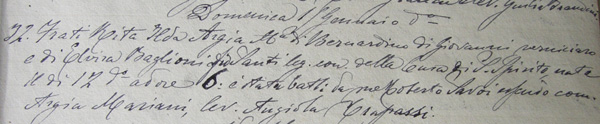 Domenica 1 Gennaio do
32. Frati Rita Ilda Argia Ma di Bernardino di Giovanni verniciaro
e di Elvira Baglioni leg. con. della Cura di S. Spirito nata
il dì 12 do a ore 6: è stata batta da me Roberto essendo com.
Argia Mariani, lev. Angiola Trapassi.